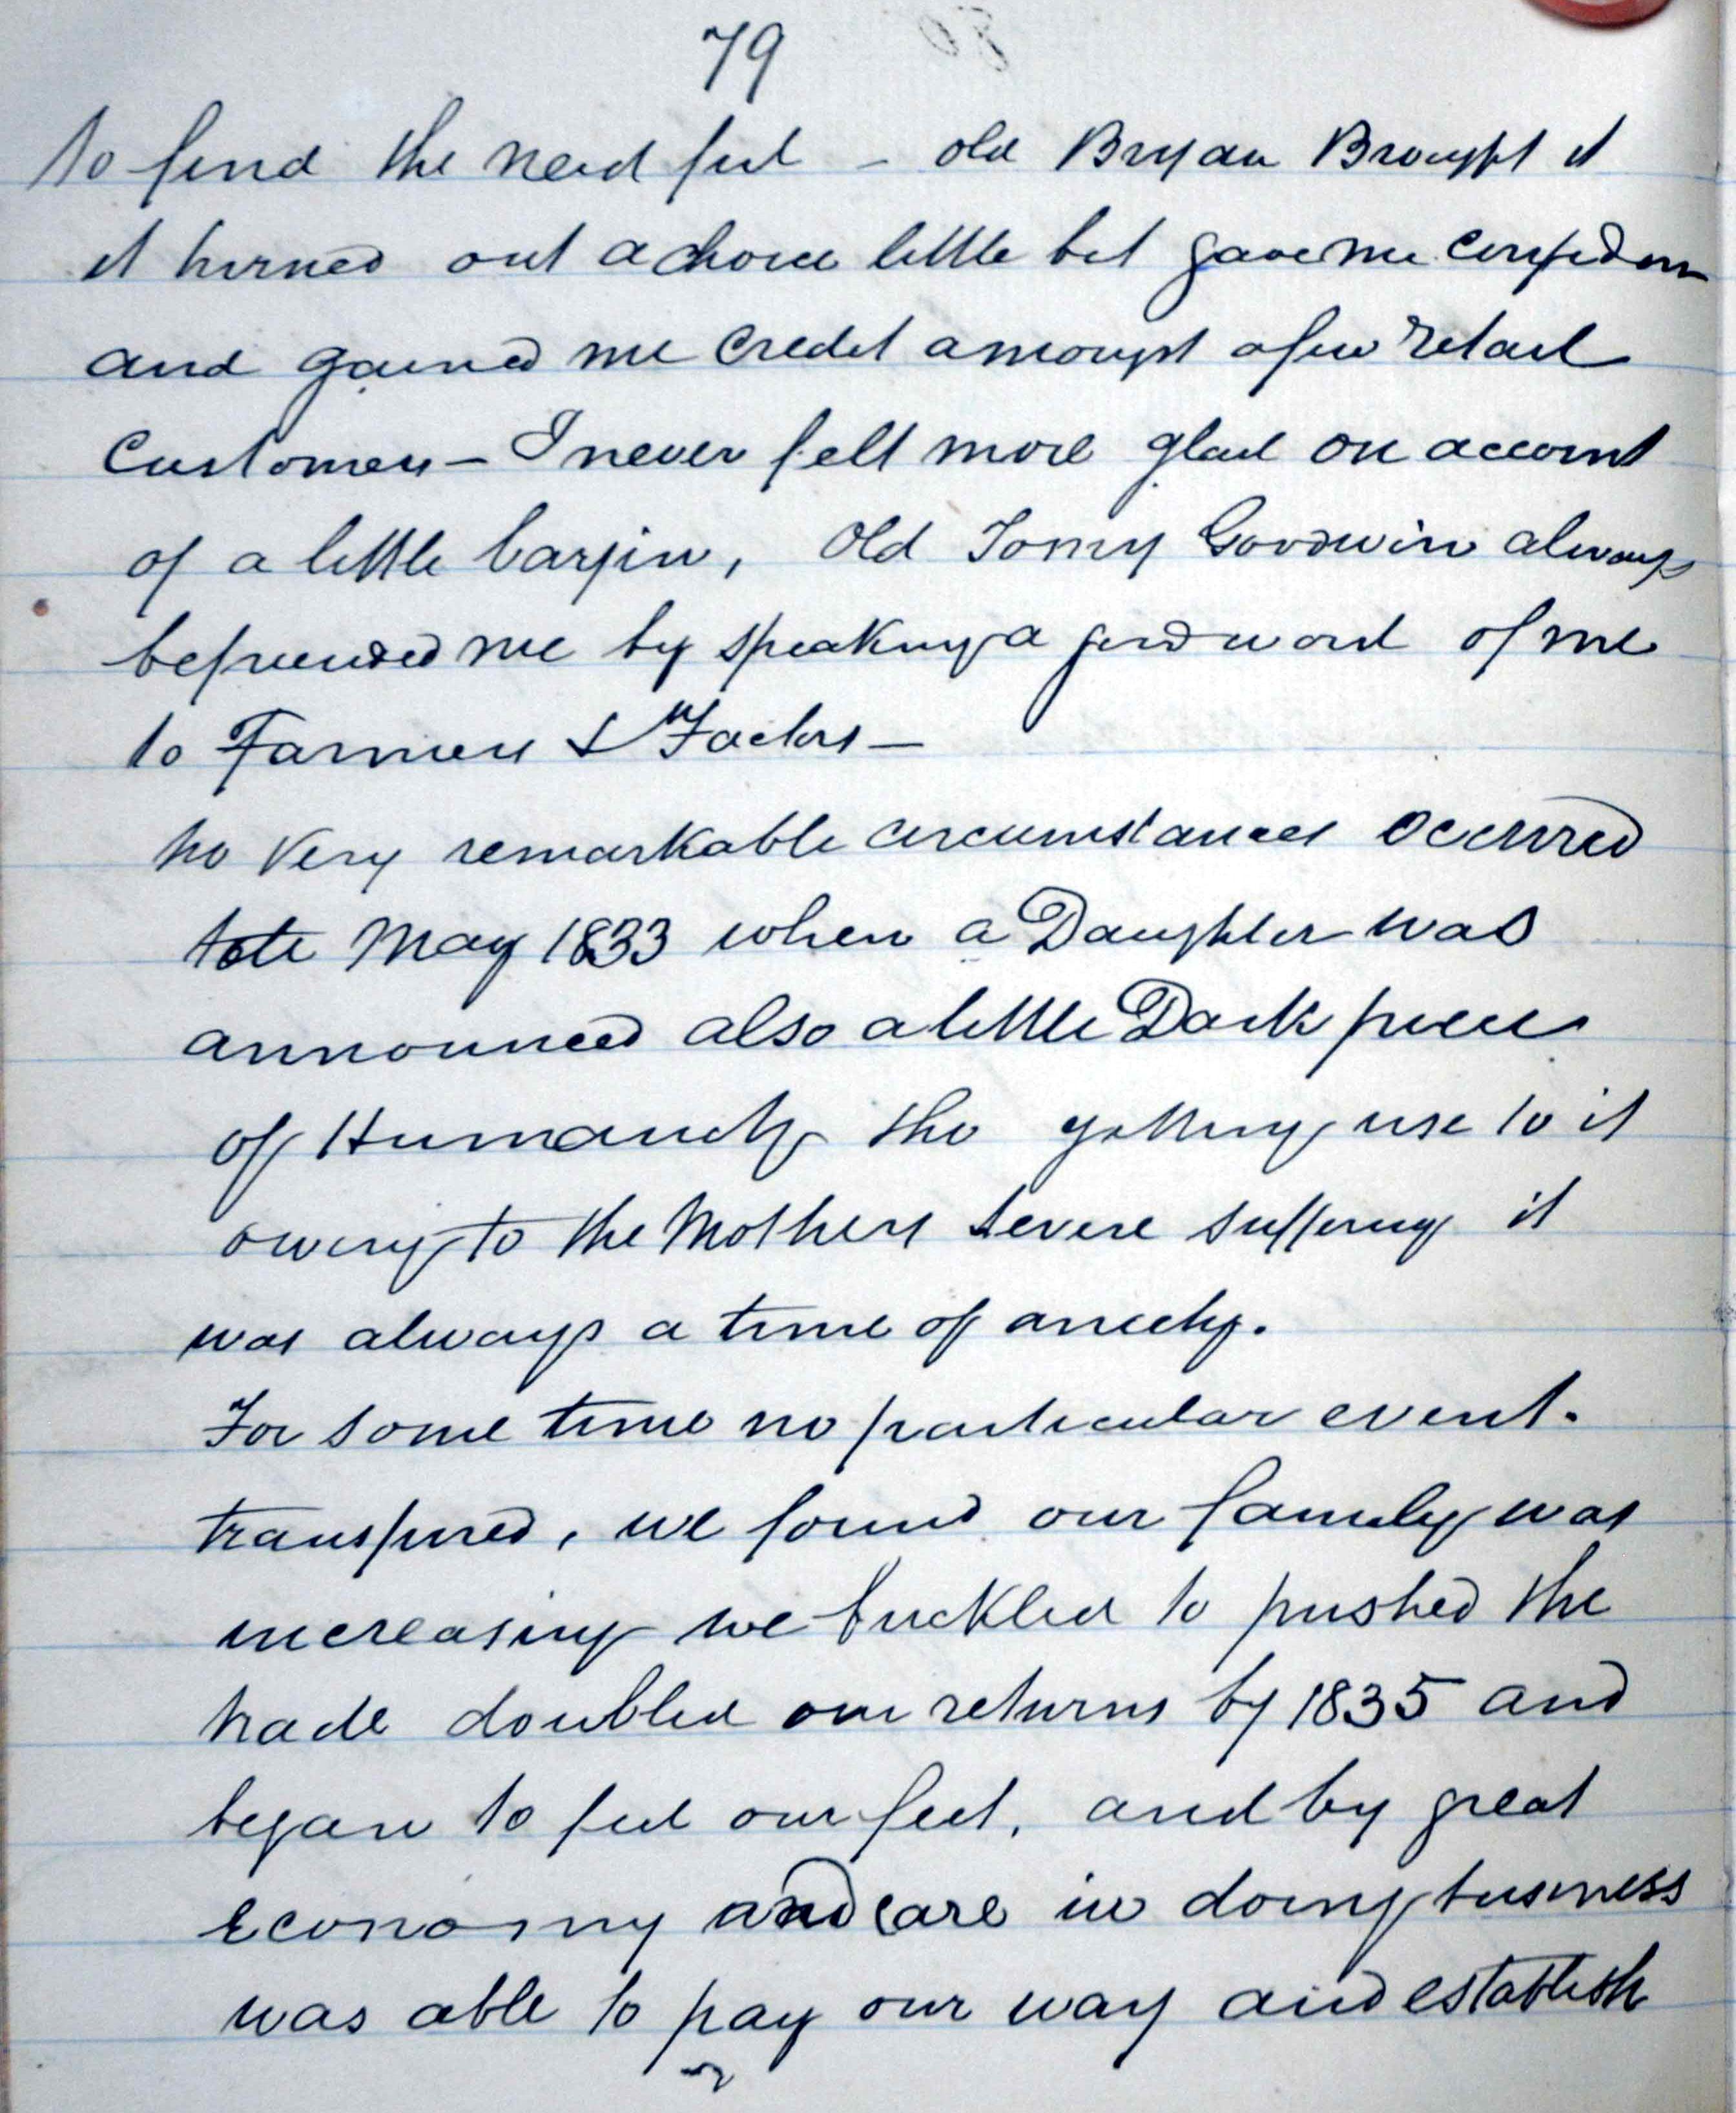 79
to find the needful - old Bryan Brought it
it turned out a choice little bit gave me confidence
and gained me credit amongst a few retail
Customers - I never felt more glad on account
of a little bargin, Old Tomy Goodwin always
befriended me by speaking a good word of me
to Farmers & Factors -
no very remarkable circumstances occurred
till May 1833 when a Daughter was
announced also a little Dark piece
of Humanity tho getting use to it
owing to the Mothers severe suffering it
was always a time of anxiety.
For some time no particular event.
transpired, we found our family was
increasing we buckled to pushed the
trade doubled our returns by 1835 and
began to feel our feet, and by great
economy and care in doing business
was able to pay our way and establish